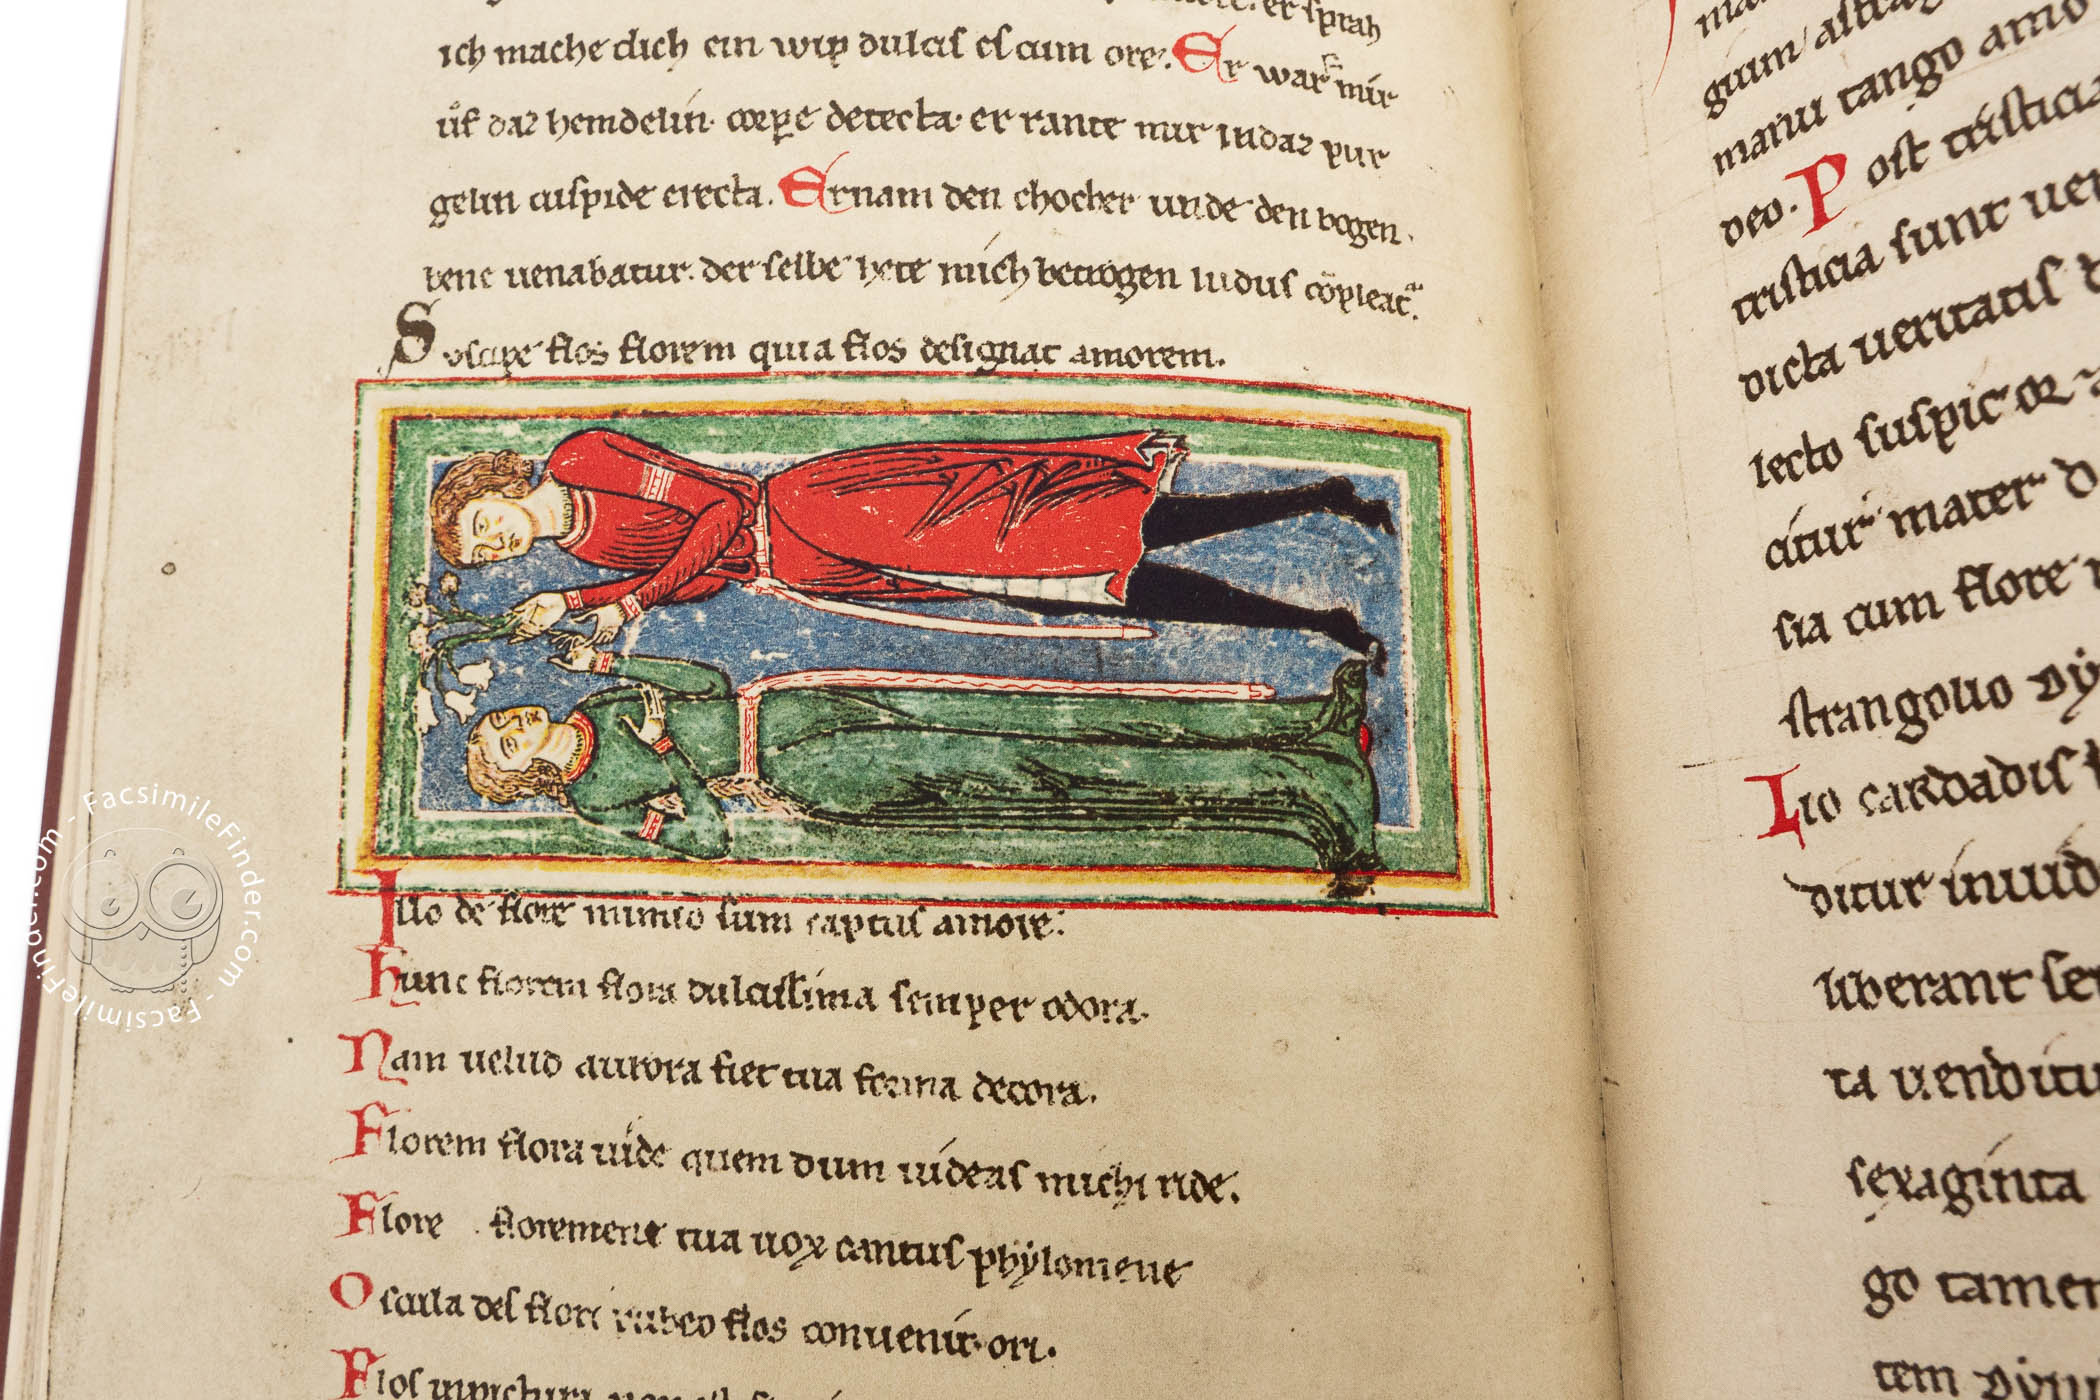 er sprah
ich mache dich ein wip dulcis es cum ore. Er warf mir
uͦf daz hemdelin. corpe detecta. er rante mir in daz pur
gelin cuspide erecta. Er nam den chocher unde den bogen.
bene uenabatur. der selbe hete mich betrogen ludus co̅pleat͛.
Suscipe flos florem quia flos designat amorem.
Illo de flore nimio sum captus amore.
hunc florem flora dulcissima semper odora.
Nam uelud aurora fiet tua forma decora.
Florem flora uide quem dum uideas michi ride.
Flore florem bene tua uox cantus phylomene
Oscula des flori rubeo flos conuenit ori.
Flos in pictura non est
gium
manu tango amo
deo. Post tristicia
tristicia sunt uer
dicta ueritatis
lecto suspicor
citur mater
sia cum flore
strangulo dy
Lio cardadis
ditur inuid
liberant se
ta uenditu
sexaginta
go tamen
tem
FacsimileFinder.com - FacsimileFinder.com -